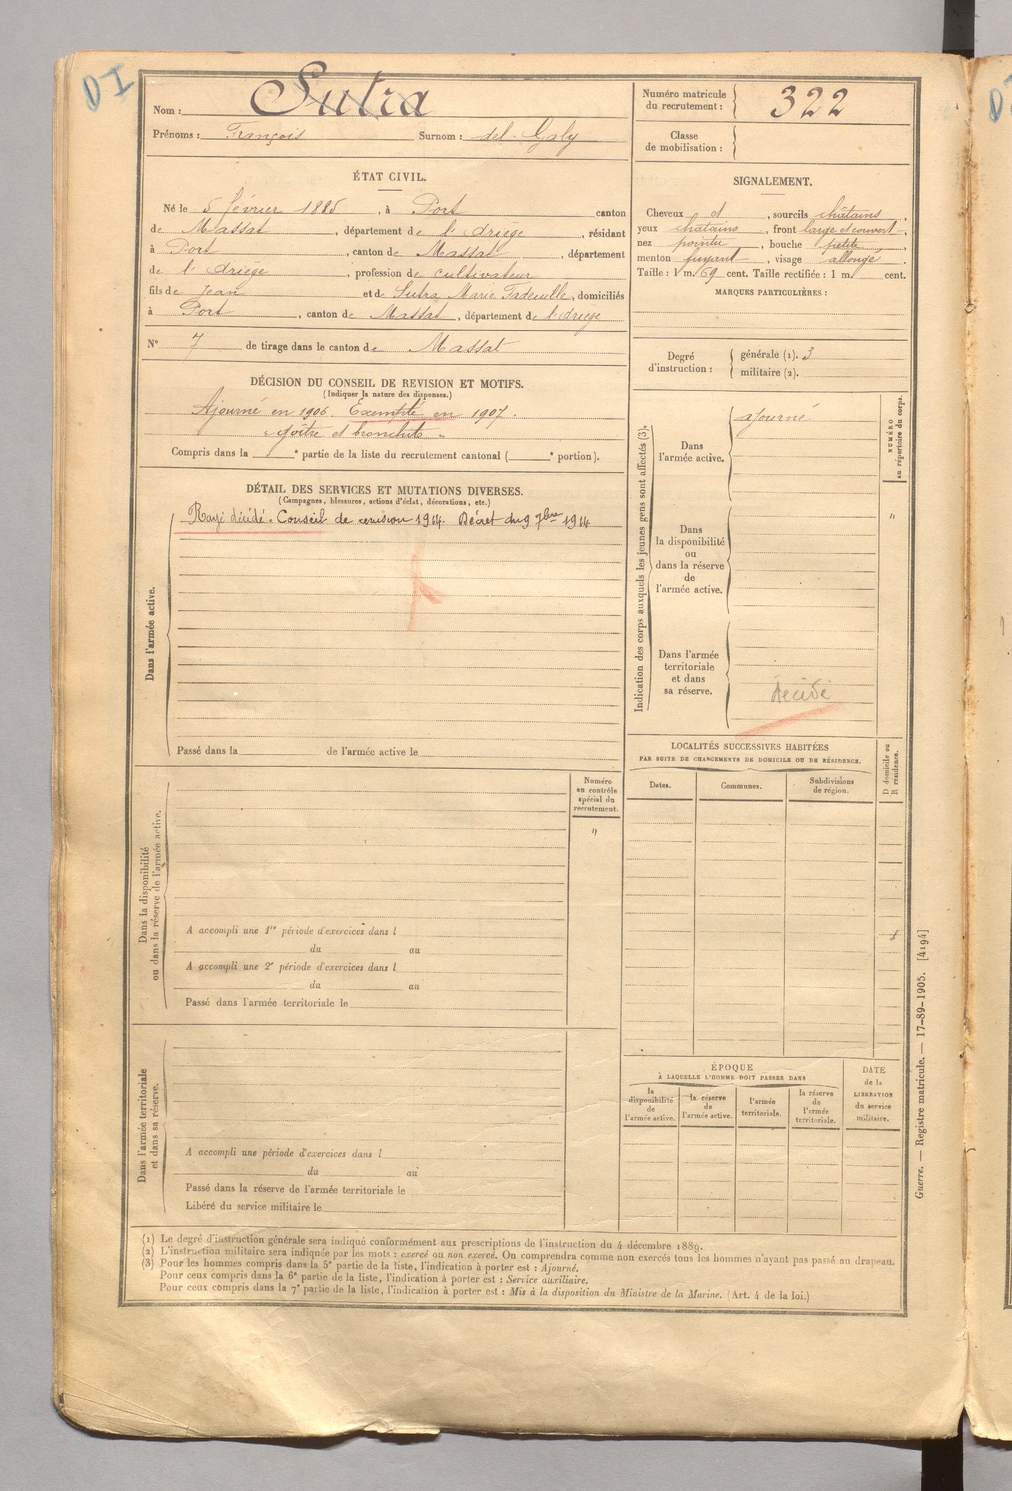 DI
Nom : Sutra
Prénoms : François Surnom : del Galy
ÉTAT CIVIL.
Né le 5 février 1885, à Port canton
de Massat, département de l'Ariège, résidant
à Port, canton de Massat, département
de l'Ariège, profession de cultivateur
fils de Jean et de Sutra Marie Tadeuille, domiciliés
à Port, canton de Massat, département de l'Ariège
N° 7 de tirage dans le canton de Massat
DÉCISION DU CONSEIL DE REVISION ET MOTIFS.
(Indiquer la nature des dispenses.)
Ajourné en 1906. Exempté en 1907.
"goître et bronchite"
Compris dans la e partie de la liste du recrutement cantonal ( e portion).
DÉTAIL DES SERVICES ET MUTATIONS DIVERSES.
(Campagnes, blessures, actions d'éclat, décorations, etc.)
Rayé décidé. Conseil de revision 1914. Décret du 9 7bre 1914
Dans l'armée active.
Passé dans la de l'armée active le
Numéro au contrôle spécial du recrutement.
"
Dans la disponibilité
ou dans la réserve de l'armée active.
A accompli une 1re période d'exercices dans l
du au
A accompli une 2e période d'exercices dans l
du au
Passé dans l'armée territoriale le
Dans l'armée territoriale
et dans sa réserve.
A accompli une période d'exercices dans l
du au
Passé dans la réserve de l'armée territoriale le
Libéré du service militaire le
Numéro matricule
du recrutement : 322
Classe
de mobilisation :
SIGNALEMENT.
Cheveux et, sourcils châtains.
yeux châtains, front large et couvert,
nez pointu, bouche petite,
menton fuyant, visage allongé.
Taille : 1 m 69 cent. Taille rectifiée : 1 m. cent.
MARQUES PARTICULIÈRES :
Degré
d'instruction :
générale (1). 3
militaire (2).
Indication des corps auxquels les jeunes gens sont affectés (3).
NUMÉRO
au répertoire du corps.
"
Dans
l'armée active.
ajourné
Dans
la disponibilité
ou
dans la réserve
de
l'armée active.
Dans l'armée
territoriale
et dans
sa réserve.
décidé
LOCALITÉS SUCCESSIVES HABITÉES
PAR SUITE DE CHANGEMENTS DE DOMICILE OU DE RÉSIDENCE.
D domicile ou
R résidence.
Dates. Communes. Subdivisions
de région.
ÉPOQUE
À LAQUELLE L'HOMME DOIT PASSER DANS
la
disponibilité
de
l'armée active.
la réserve
de
l'armée active.
l'armée
territoriale.
la réserve
de
l'armée
territoriale.
DATE
de la
LIBÉRATION
du service
militaire.
Guerre. — Registre matricule. — 17-89-1905. [4194]
(1) Le degré d'instruction générale sera indiqué conformément aux prescriptions de l'instruction du 4 décembre 1889.
(2) L'instruction militaire sera indiquée par les mots : exercé ou non exercé. On comprendra comme non exercés tous les hommes n'ayant pas passé au drapeau.
(3) Pour les hommes compris dans la 5e partie de la liste, l'indication à porter est : Ajourné.
Pour ceux compris dans la 6e partie de la liste, l'indication à porter est : Service auxiliaire.
Pour ceux compris dans la 7e partie de la liste, l'indication à porter est : Mis à la disposition du Ministre de la Marine. (Art. 4 de la loi.)